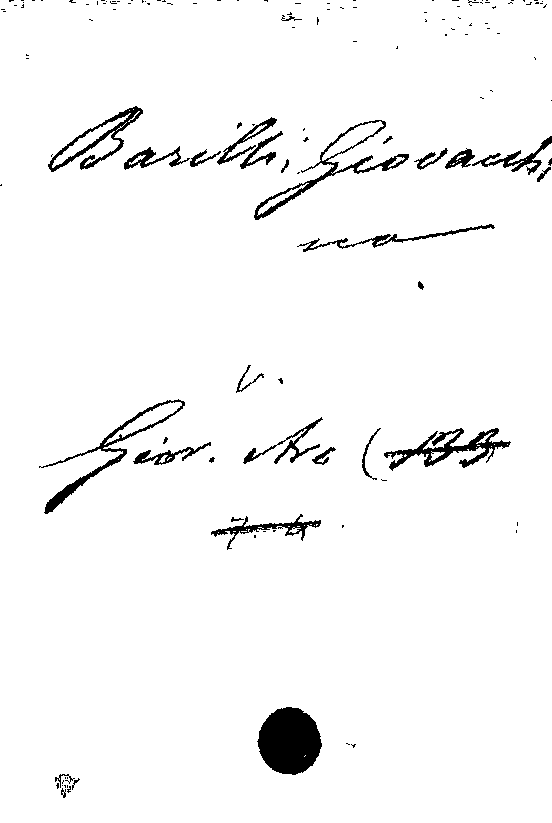 Barilli, Giovacchi
no
v.
Giov. Are (133
7. 4